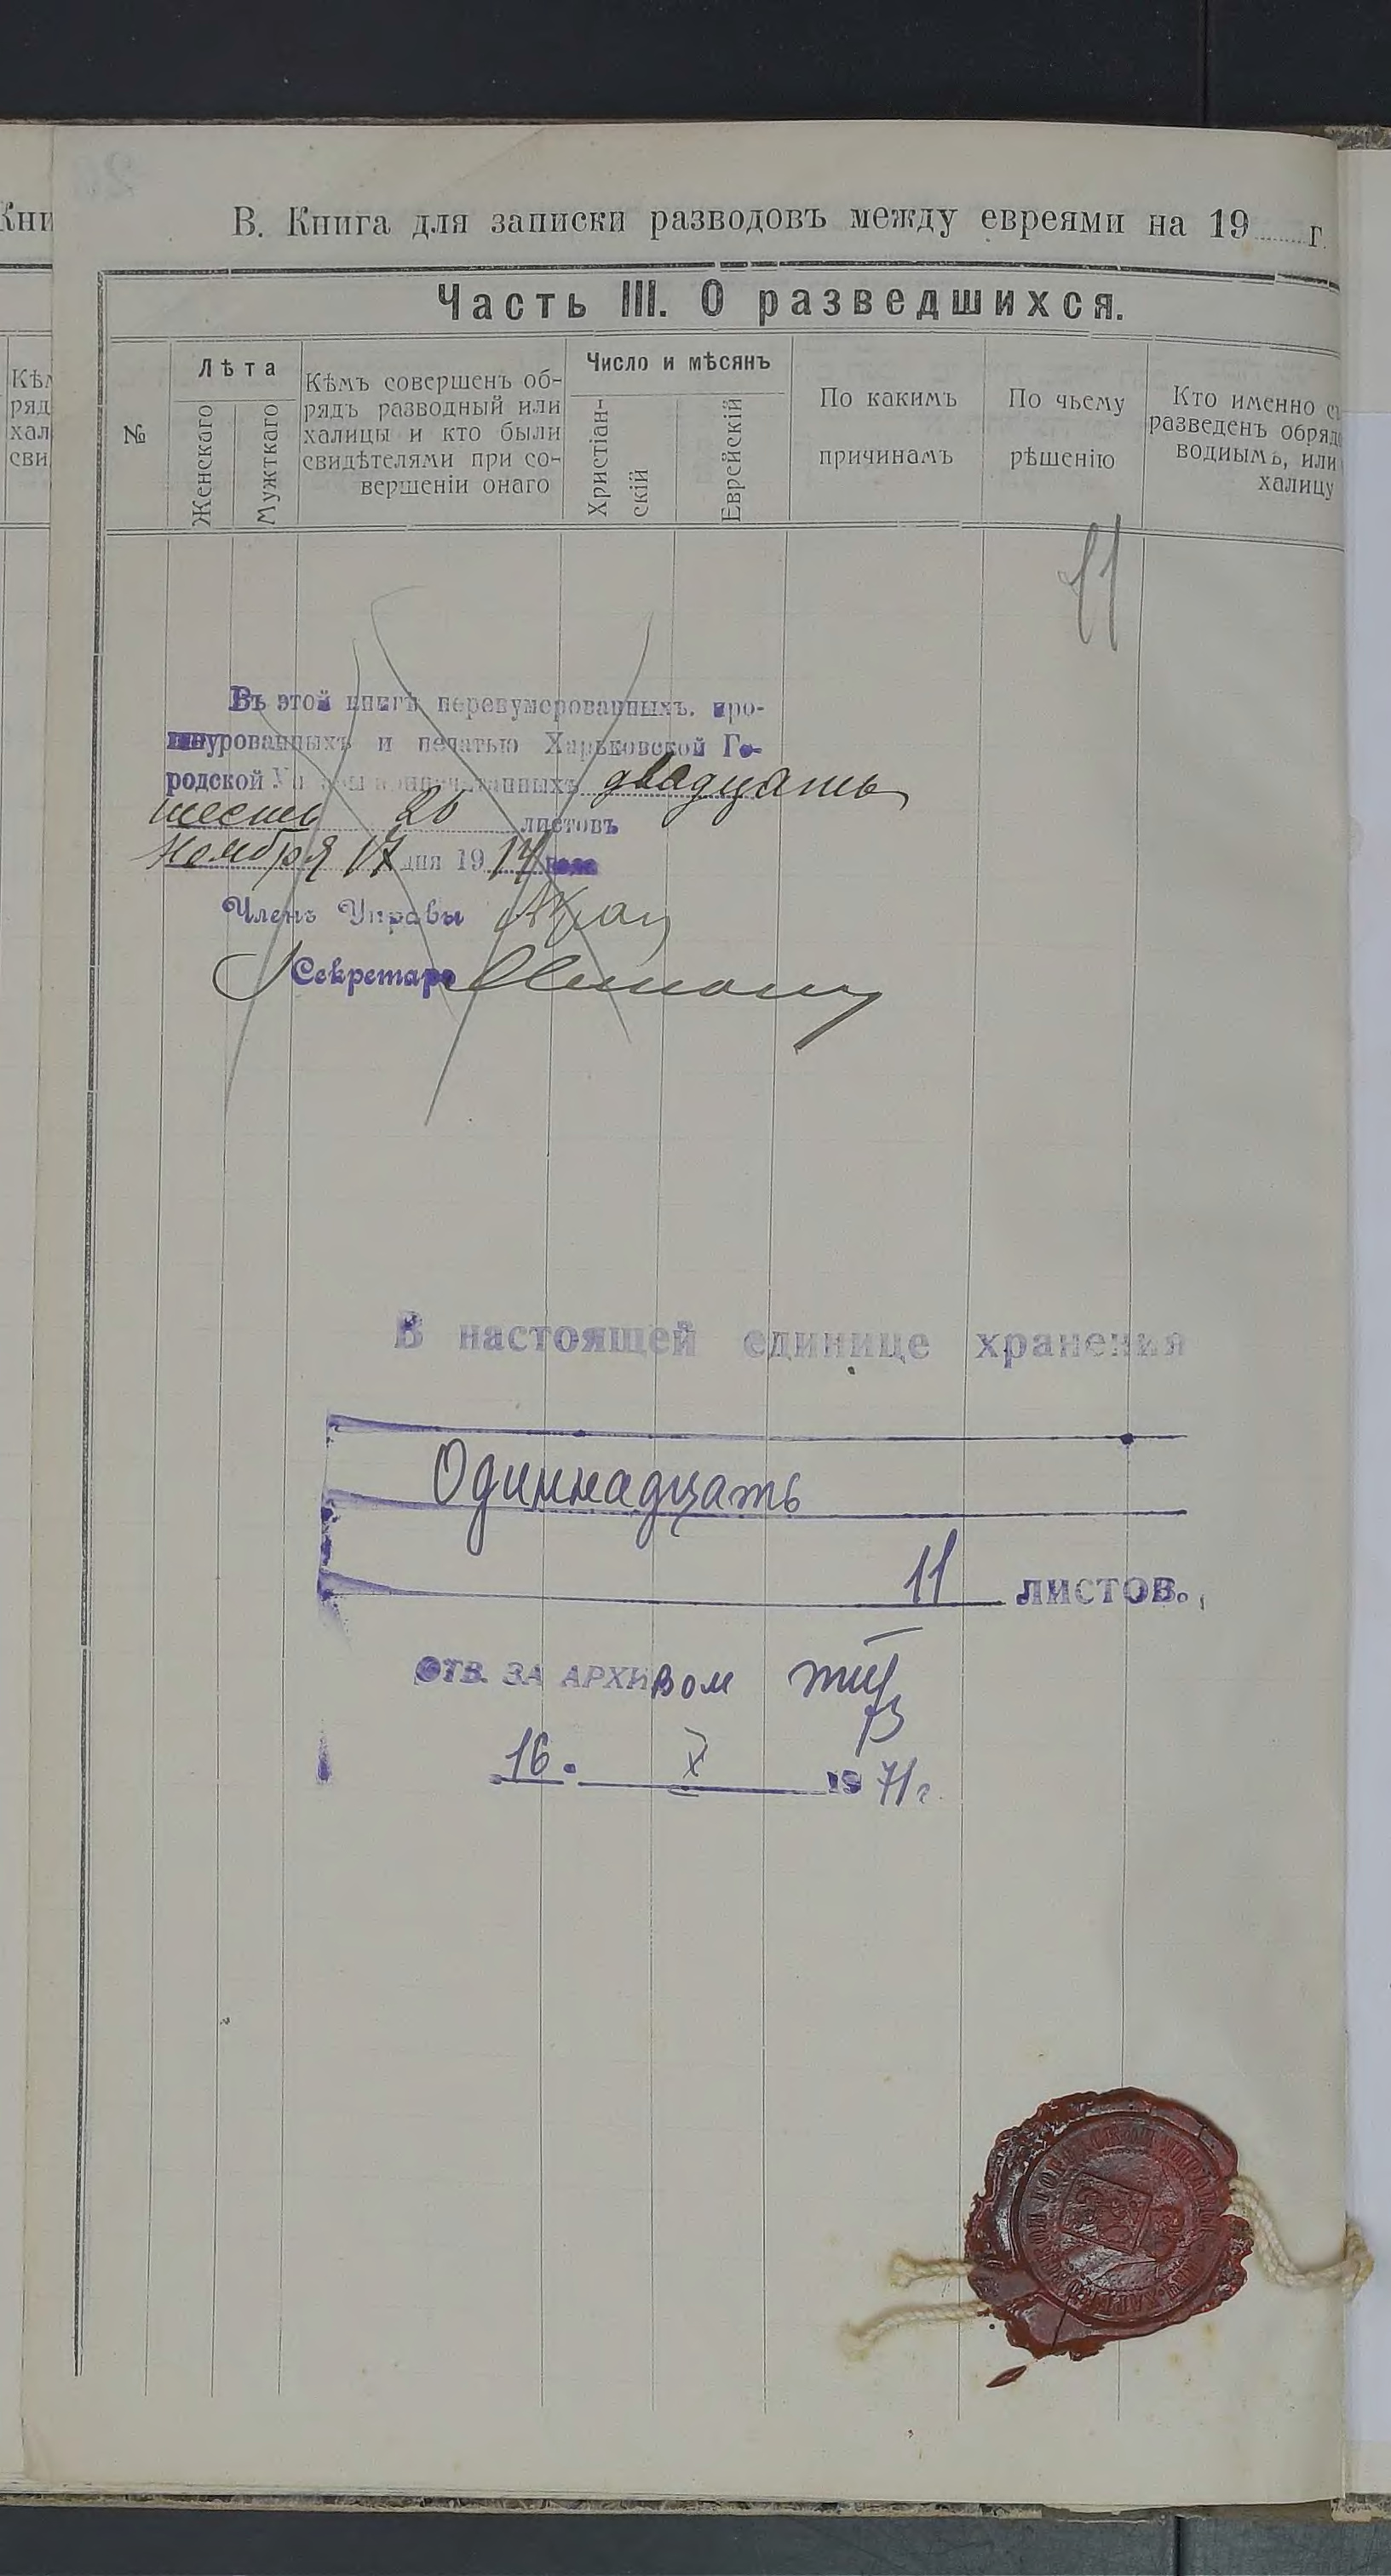 Кни
В. Книга для записки разводовъ между евреями на 19 г.
Часть III. О разведшихся.
Кѣм
ряд
хал
сви
№
Лѣта
Женскаго
Мужткаго
Кѣмъ совершенъ об-
рядъ разводный или
халицы и кто были
свидѣтелями при со-
вершеніи онаго
Число и мѣсянъ
Христіан-
скій
Еврейскій
По какимъ
причинамъ
По чьему
рѣшенію
Кто именно съ
разведенъ обряд
воднымъ, или
халицу
11
Въ этой книгѣ перенумерованныхъ, про-
шнурованныхъ и печатью Харьковской Го-
родской двадцать
шесть 26 листовъ
Ноября 17 дня 1914 года
Членъ Управы
Секретарь
В настоящей единице хранения
Одиннадцать
11 листов.
ОТВ. ЗА АРХИвом
16. X 1971 г.